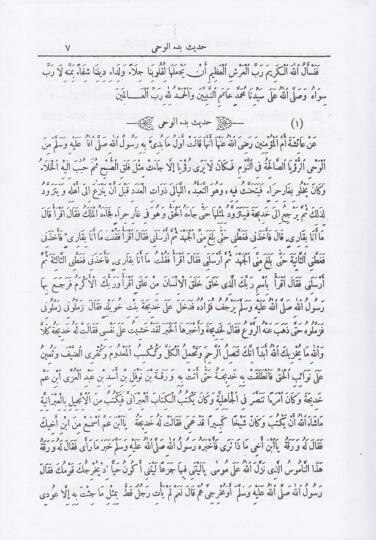 حديث بدء الوحى ٧
فنسأل الله الكريم رب العرش العظيم أن يجعلها لقلوبنا جلاء ولداء ديننا شفاء بمنه لا رب
سواه وصلى الله على سيدنا محمد خاتم النبيين والحمد لله رب العالمين
(١) حديث بدء الوحى
عن عائشة أم المؤمنين رضى الله عنها أنها قالت أول ما بدئ به رسول الله صلى الله عليه وسلم من
الوحى الرؤيا الصالحة فى النوم فكان لا يرى رؤيا إلا جاءت مثل فلق الصبح ثم حبب اليه الخلاء
وكان يخلو بغار حراء فيتحنث فيه وهو التعبد الليالى ذوات العدد قبل أن ينزع الى أهله ويتزود
لذلك ثم يرجع الى خديجة فيتزود لمثلها حتى جاءه الحق وهو فى غار حراء فجاءه الملك فقال اقرأ قال
ما أنا بقارئ قال فأخذنى فغطنى حتى بلغ منى الجهد ثم أرسلنى فقال اقرأ فقلت ما أنا بقارئ فأخذنى
فغطنى الثانية حتى بلغ منى الجهد ثم أرسلنى فقال اقرأ فقلت ما أنا بقارئ فأخذنى فغطنى الثالثة ثم
أرسلنى فقال اقرأ باسم ربك الذى خلق خلق الانسان من علق اقرأ وربك الأكرم فرجع بها
رسول الله صلى الله عليه وسلم يرجف فؤاده فدخل على خديجة بنت خويلد فقال زملونى زملونى
فزملوه حتى ذهب عنه الروع فقال لخديجة وأخبرها الخبر لقد خشيت على نفسى فقالت له خديجة كلا
والله ما يخزيك الله أبدا انك لتصل الرحم وتحمل الكل وتكسب المعدوم وتقرى الضيف وتعين
على نوائب الحق فانطلقت به خديجة حتى أتت به ورقة بن نوفل بن أسد بن عبد العزى ابن عم
خديجة وكان امرأ تنصر فى الجاهلية وكان يكتب الكتاب العبرانى فيكتب من الإنجيل بالعبرانية
ماشاء الله أن يكتب وكان شيخا كبيرا قد عمى فقالت له خديجة يا ابن عم اسمع من ابن أخيك
فقال له ورقة يا ابن أخى ما ذا ترى فأخبره رسول الله صلى الله عليه وسلم خبر ما رأى فقال له ورقة
هذا الناموس الذى نزل الله على موسى ياليتنى فيها جذعا ليتنى أكون حيا إذ يخرجك قومك فقال
رسول الله صلى الله عليه وسلم أو مخرجى هم قال نعم لم يأت رجل قط بمثل ما جئت به إلا عودى